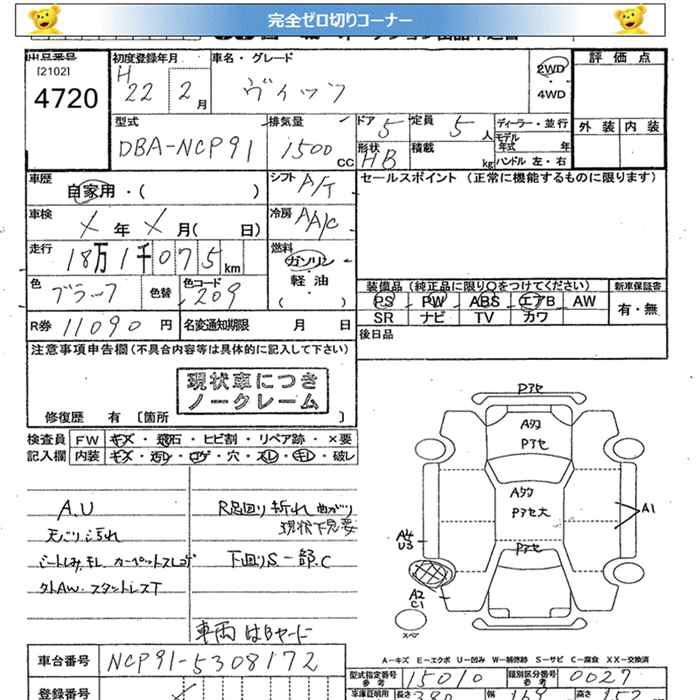 完全ゼロ切りコーナー
出品番号 初度登録年月 車名・グレード 2WD 評価点
[2102] H
4720 22 2月 ヴィッツ 4WD
外装 内装
型式 排気量 ドア 5 定員 5人 ディーラー・並行
DBA-NCP91 1500 CC モデル年式 年
形状 HB 積載 kg ハンドル 左・右
車歴 自家用・( ) シフト A/T セールスポイント (正常に機能するものに限ります)
車検 X年 X月( 日) 冷房 AA/C
走行 18万1千075km 燃料 ガソリン・軽油・( )
色 ブラック 色替 色コード 209
装備品(純正品に限り○をつけてください) 新車保証書
PS PW ABS エアB AW 有・無
SR ナビ TV カワ
R券 11090円 名変通知期限 月 日 後日品
注意事項申告欄(不具合内容等は具体的に記入して下さい)
現状車につき
ノークレーム
修復歴 有 [箇所
検査員 FW キズ・飛石・ヒビ割・リペア跡・×要
記入欄 内装 キズ・汚レ・コゲ・穴・スレ・キレ・破レ
A.U R足回り折れ曲がり
天にり汚れ 現状下見要
シートしみ、モレ、カーペットスレコゲ 下回りS一部.C
外AW.スタッドレスT
車両はBヤード
Pアセ
Aタク
Pアセ
Aタク
Pアセ大
Pアセ
A1
A4
U3
A2
C1
スペア
A-キズ E-エクボ U-凹み W-補修跡 S-サビ C-腐食 XX-交換済
車台番号 NCP91-5308172
型式指定番号参考 15010 類別区分番号参考 0027
登録番号
車庫証明用 長さ 380 幅 169 高さ 152